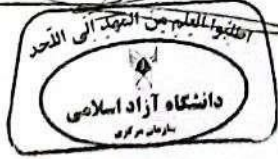 اطلبوا العلم من المهد الی اللّحد
دانشگاه آزاد اسلامی
سازمان مرکزی